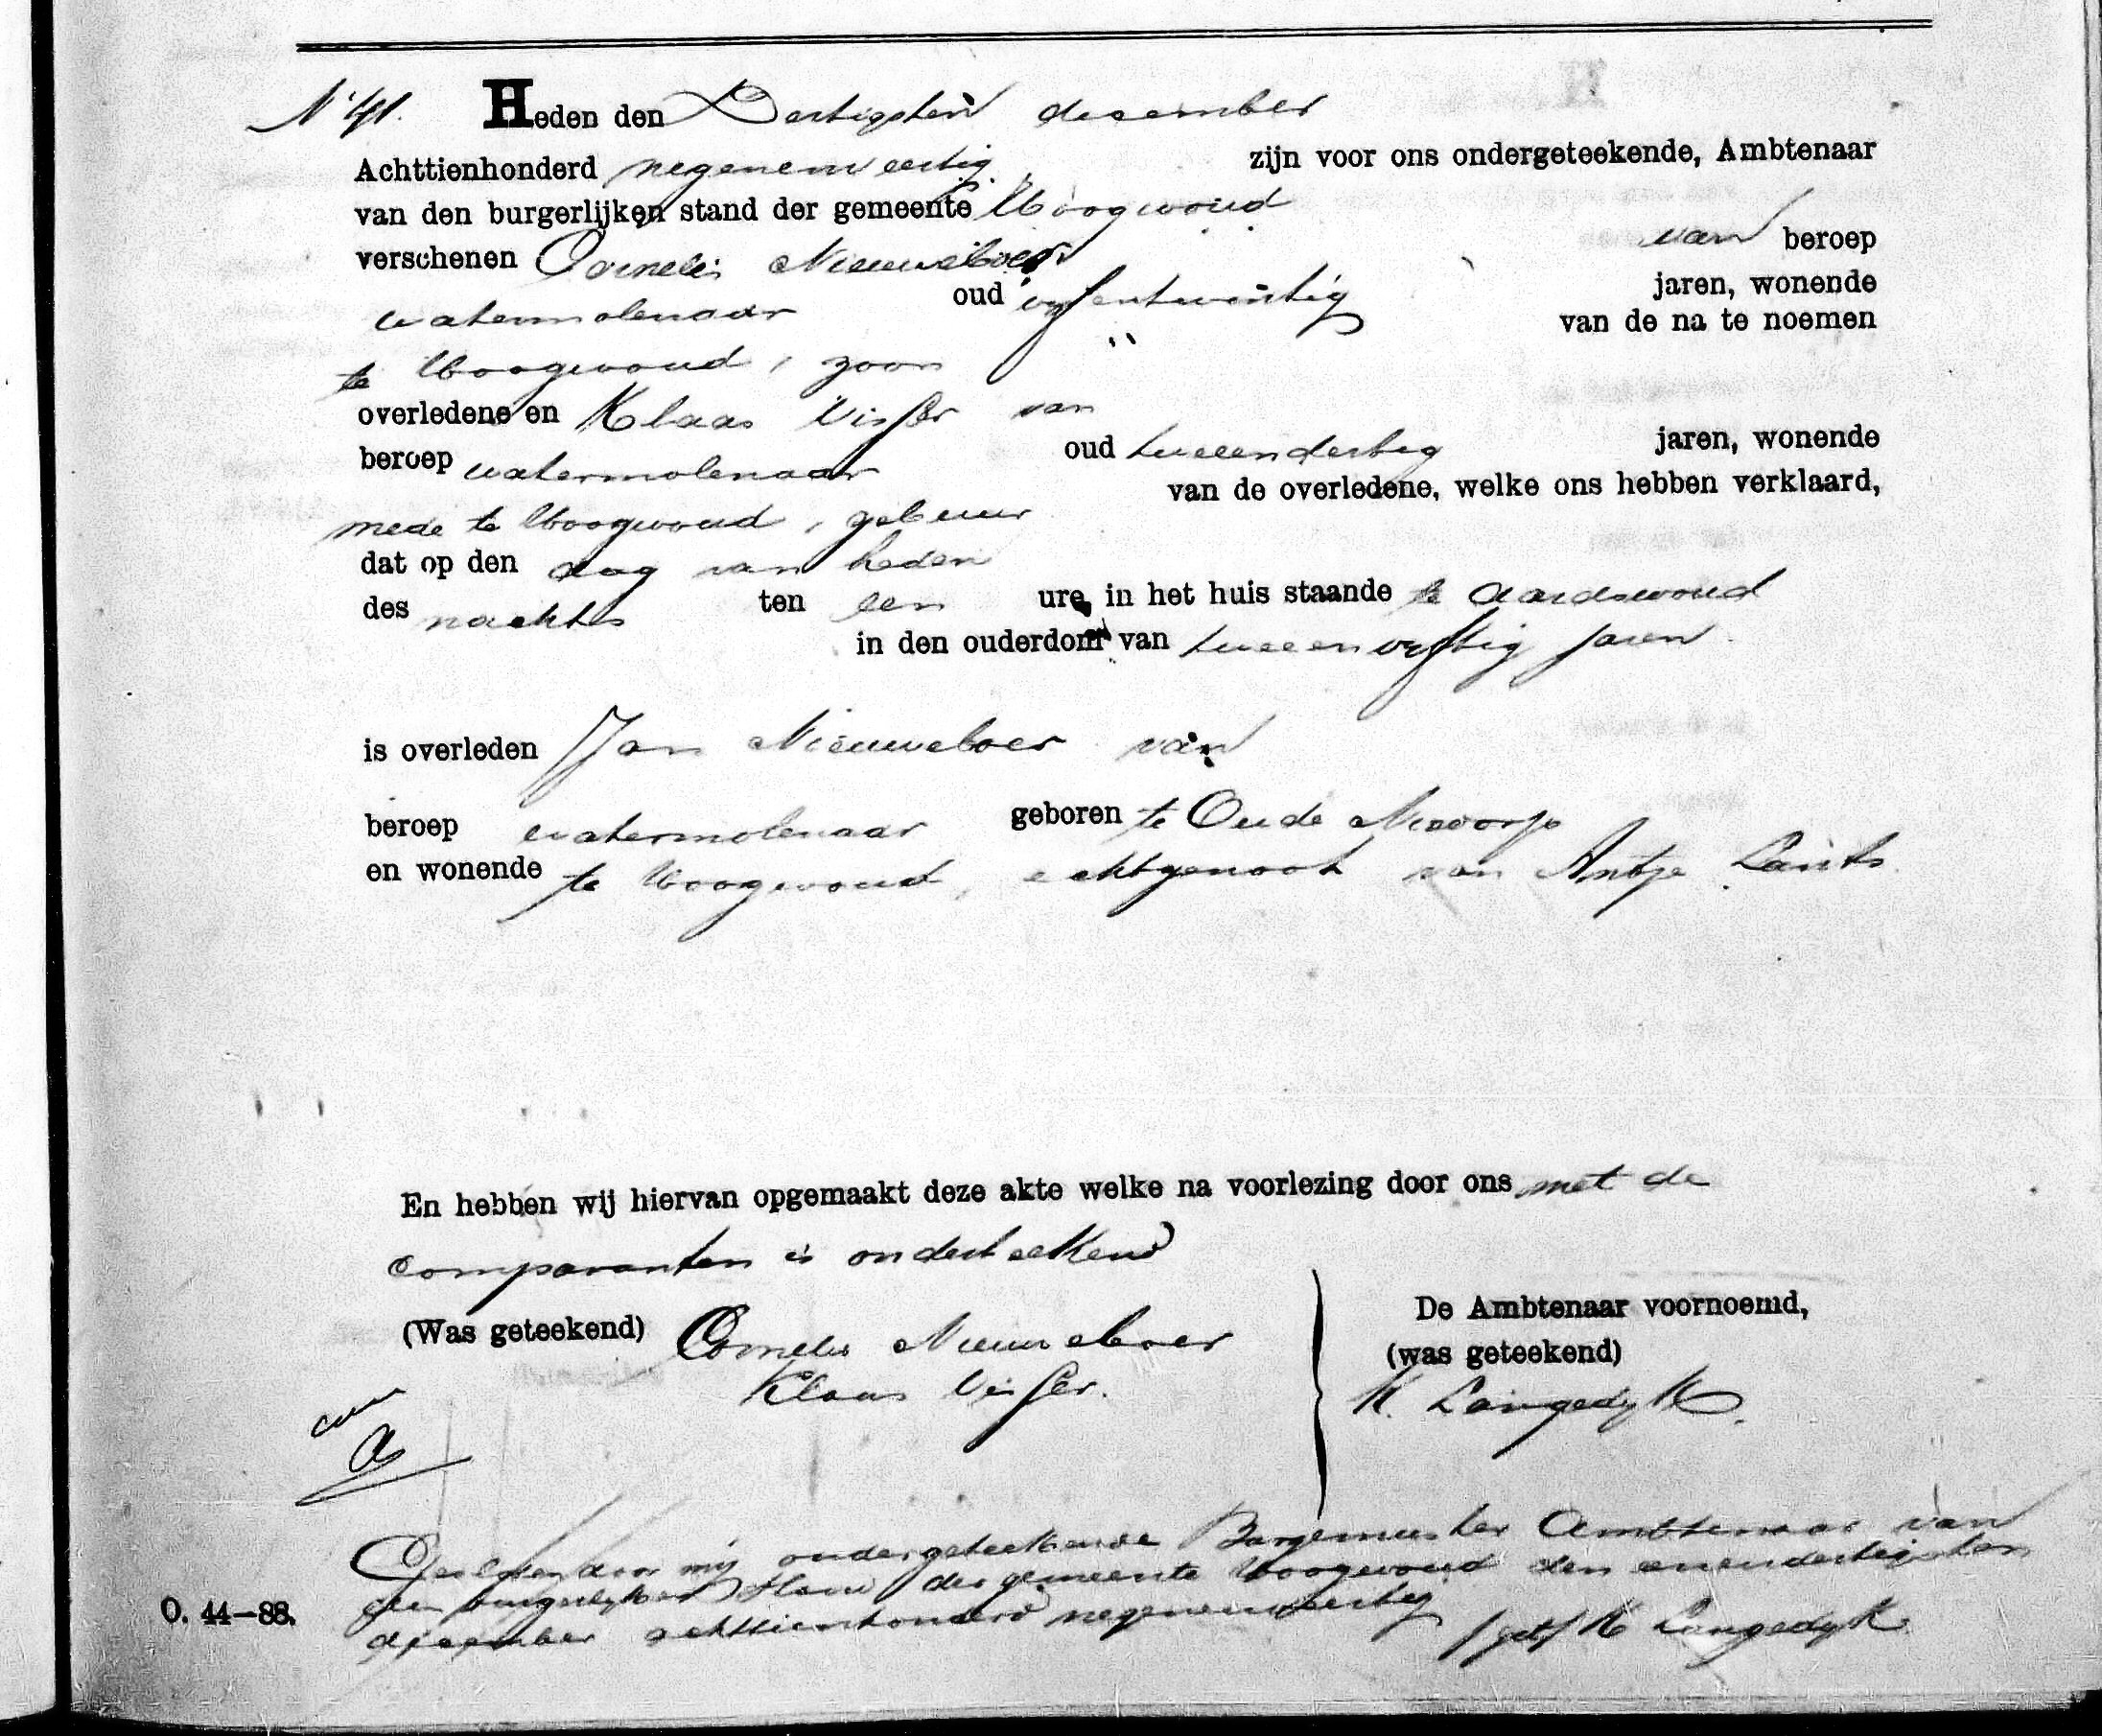 N° 41. Heden den Dertigsten december
Achttienhonderd negenenveertig zijn voor ons ondergeteekende, Ambtenaar
van den burgerlijken stand der gemeente Hoogwoud
verschenen Cornelis Nieuweboer van beroep
watermolenaar oud vyfentwintig jaren, wonende
te Hoogwoud, zoon van de na te noemen
overledene en Klaas Visser van
beroep watermolenaar oud tweeendertig jaren, wonende
mede te Hoogwoud, gebuur van de overledene, welke ons hebben verklaard,
dat op den dag van heden
des nachts ten een ure, in het huis staande te Aardswoud
in den ouderdom van tweeenvyftig jaren
is overleden Jan Nieuweboer van
beroep watermolenaar geboren te Oude Niedorp
en wonende te Hoogwoud, echtgenoot van Antje Lants
En hebben wij hiervan opgemaakt deze akte welke na voorlezing door ons met de
comparanten is onderteekend
(Was geteekend) Cornelis Nieuweboer
Klaas Visser.
De Ambtenaar voornoemd,
(was geteekend)
K. Langedyk.
Gesloten door my ondergeteekende Burgemeester Ambtenaar van
den burgerlyken stand der gemeente Hoogwoud den eenendertigsten
december achttienhonderd negenenveertig /get/ K Langedyk
O. 44—88.